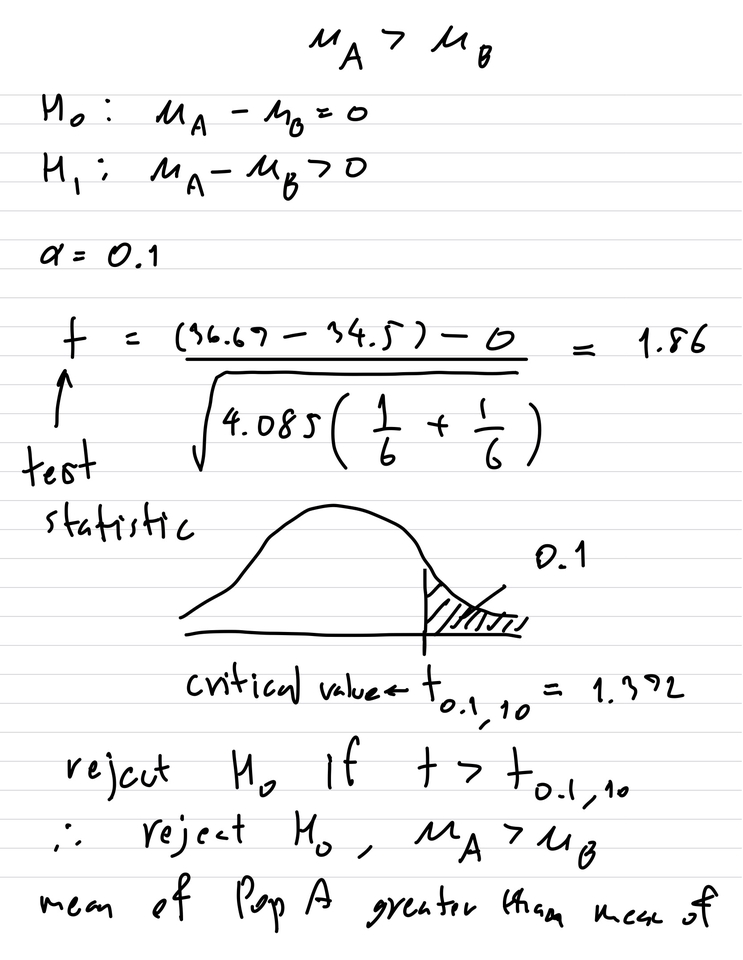 μ_A > μ_B
H₀ : μ_A - μ_B = 0
H₁ : μ_A - μ_B > 0
α = 0.1
t = ((36.67 - 34.5) - 0) / √(4.085 (1/6 + 1/6)) = 1.86
test
statistic
0.1
critical value ← t_0.1,10 = 1.372
reject H₀ if t > t_0.1,10
∴ reject H₀, μ_A > μ_B
mean of Pop A greater than mean of